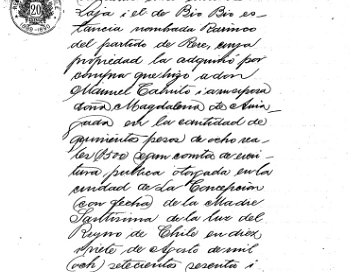 20
Laja i el de Bio Bio es-
tancia nombada Ranico
del partido de Rere, cuya
propiedad la adquirió por
compra que hizo a don
Manuel Cabrito i a su esposa
doña Magdalena de Arria-
gada en la cantidad de
quinientos pesos de ocho rea-
les $500 segun consta de escri-
tura publica otorgada en la
ciudad de La Concepcion
(con fecha) de la Madre
Santísima de la Luz del
Reyno de Chile en diez
i siete de Agosto de mil
(och) setecientos sesenta i